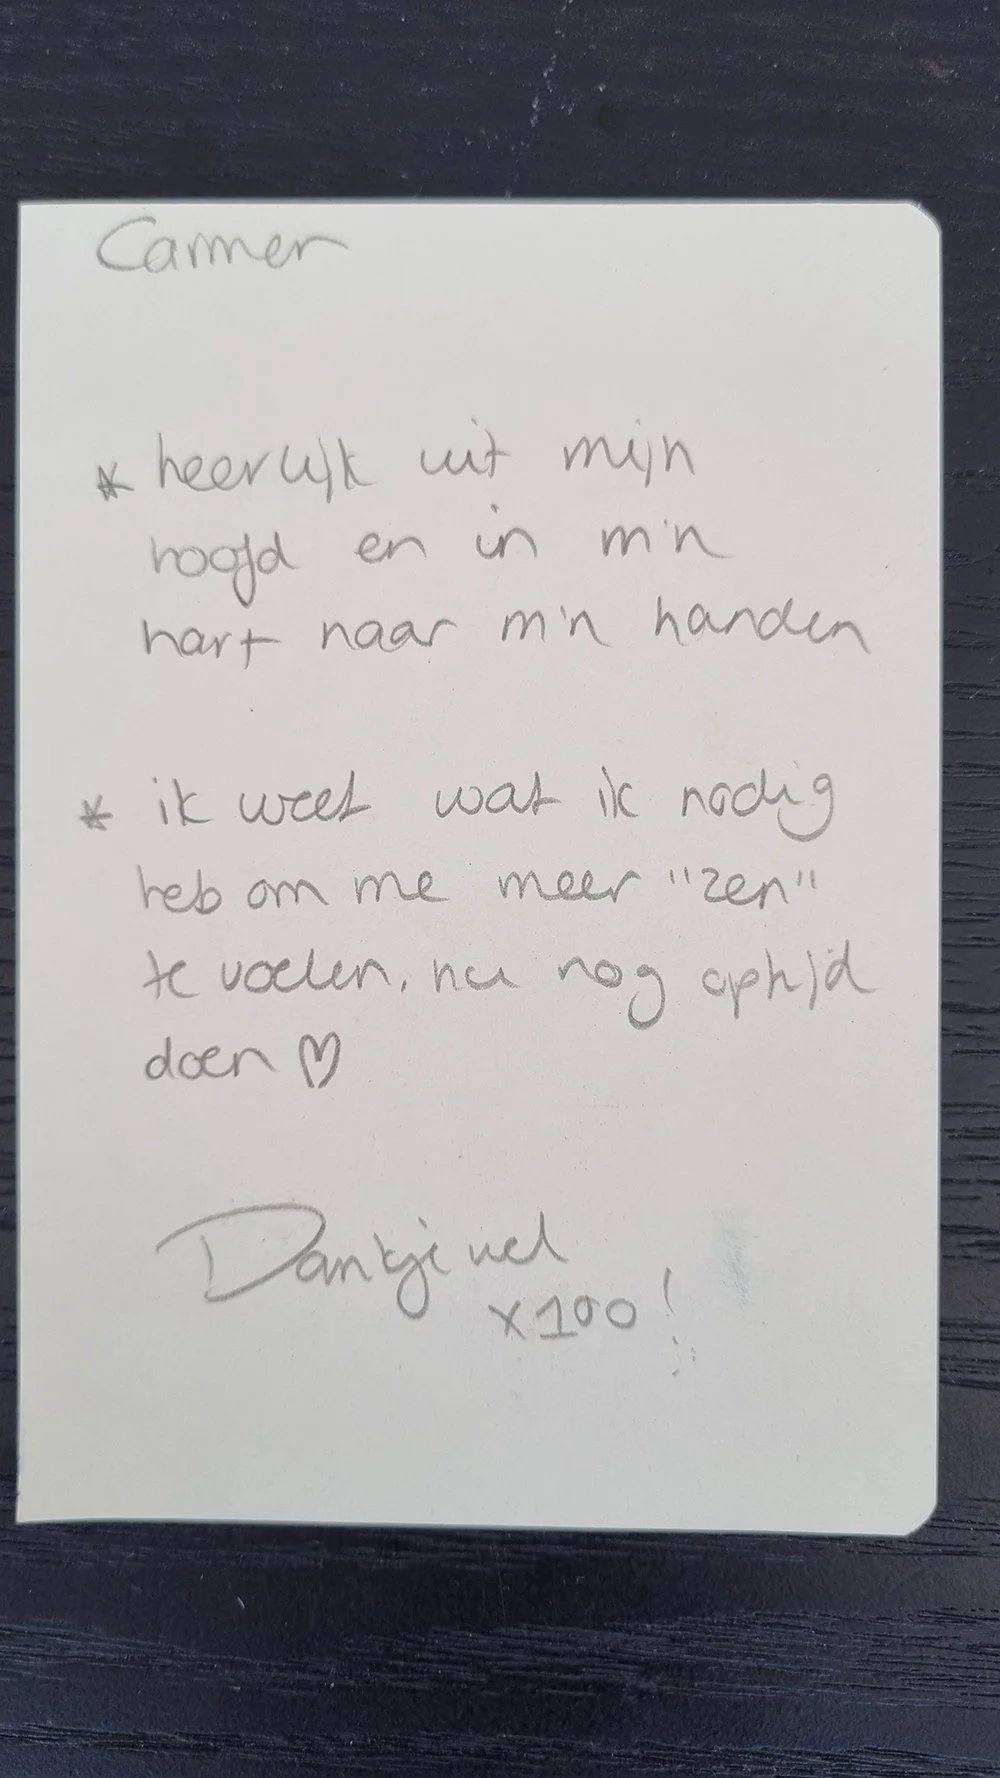 Carmen
* heerlijk uit mijn
hoofd en in m'n
hart naar m'n handen
* ik weet wat ik nodig
heb om me meer "zen"
te voelen, nu nog altijd
doen ♡
Dankjewel
x100!